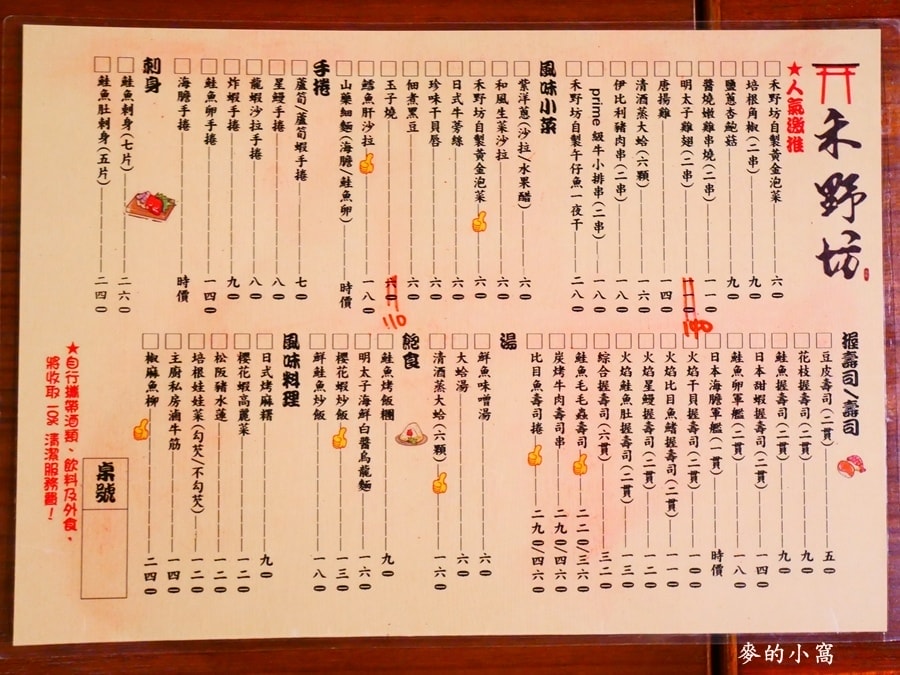 禾野坊
★人氣激推
禾野坊自製黃金泡菜 六0
培根角椒(二串) 九0
鹽蔥杏鮑菇 九0
醬燒嫩雞串燒(二串) 一一0
明太子雞翅(二串) 140
唐揚雞 一四0
清酒蒸大蛤(六顆) 一六0
伊比利豬肉串(二串) 一八0
prime級牛小排串(二串) 一八0
禾野坊自製午仔魚一夜干 二八0
風味小菜
紫洋蔥(沙拉/水果醋) 六0
和風生菜沙拉 六0
禾野坊自製黃金泡菜 六0
日式牛蒡絲 六0
珍味干貝唇 六0
佃煮黑豆 六0
玉子燒 六0 110
鱈魚肝沙拉 一八0
山藥細麵(海膽/鮭魚卵) 時價
手捲
蘆筍/蘆筍蝦手捲 七0
星鰻手捲 八0
龍蝦沙拉手捲 八0
炸蝦手捲 九0
鮭魚卵手捲 一四0
海膽手捲 時價
刺身
鮭魚刺身(七片) 二六0
鮭魚肚刺身(五片) 二四0
握壽司/壽司
豆皮壽司(二貫) 五0
花枝握壽司(二貫) 九0
鮭魚握壽司(二貫) 九0
日本甜蝦握壽司(二貫) 一四0
鮭魚卵軍艦(二貫) 一八0
日本海膽軍艦(二貫) 時價
火焰干貝握壽司(二貫) 一一0
火焰比目魚鰭握壽司(二貫) 一一0
火焰星鰻握壽司(二貫) 一二0
火焰鮭魚肚握壽司(二貫) 一三0
綜合握壽司(六貫) 三二0
鮭魚毛毛蟲壽司 二二0/三六0
炭烤牛肉壽司串 二九0/四六0
比目魚壽司捲 二九0/四六0
湯
鮮魚味噌湯 六0
大蛤湯 六0
清酒蒸大蛤(六顆) 一六0
飽食
鮭魚烤飯糰 九0
明太子海鮮白醬烏龍麵 一六0
櫻花蝦炒飯 一三0
鮮鮭魚炒飯 一八0
風味料理
日式烤麻糬 九0
櫻花蝦高麗菜 一二0
松阪豬水蓮 一二0
培根娃娃菜(勾芡/不勾芡) 一二0
主廚私房滷牛筋 一四0
椒麻魚柳 二四0
桌號
★自行攜帶酒類、飲料及外食，
將收取一0% 清潔服務費！
麥的小窩